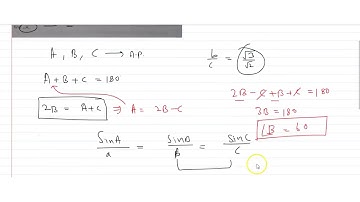 A, B, C → A.P.
b/c = √3/√2
A+B+C = 180
2B = A+C ⇒ A = 2B-C
2B-C+B+C = 180
3B = 180
LB = 60
SinA/a = SinB/B = SinC/C